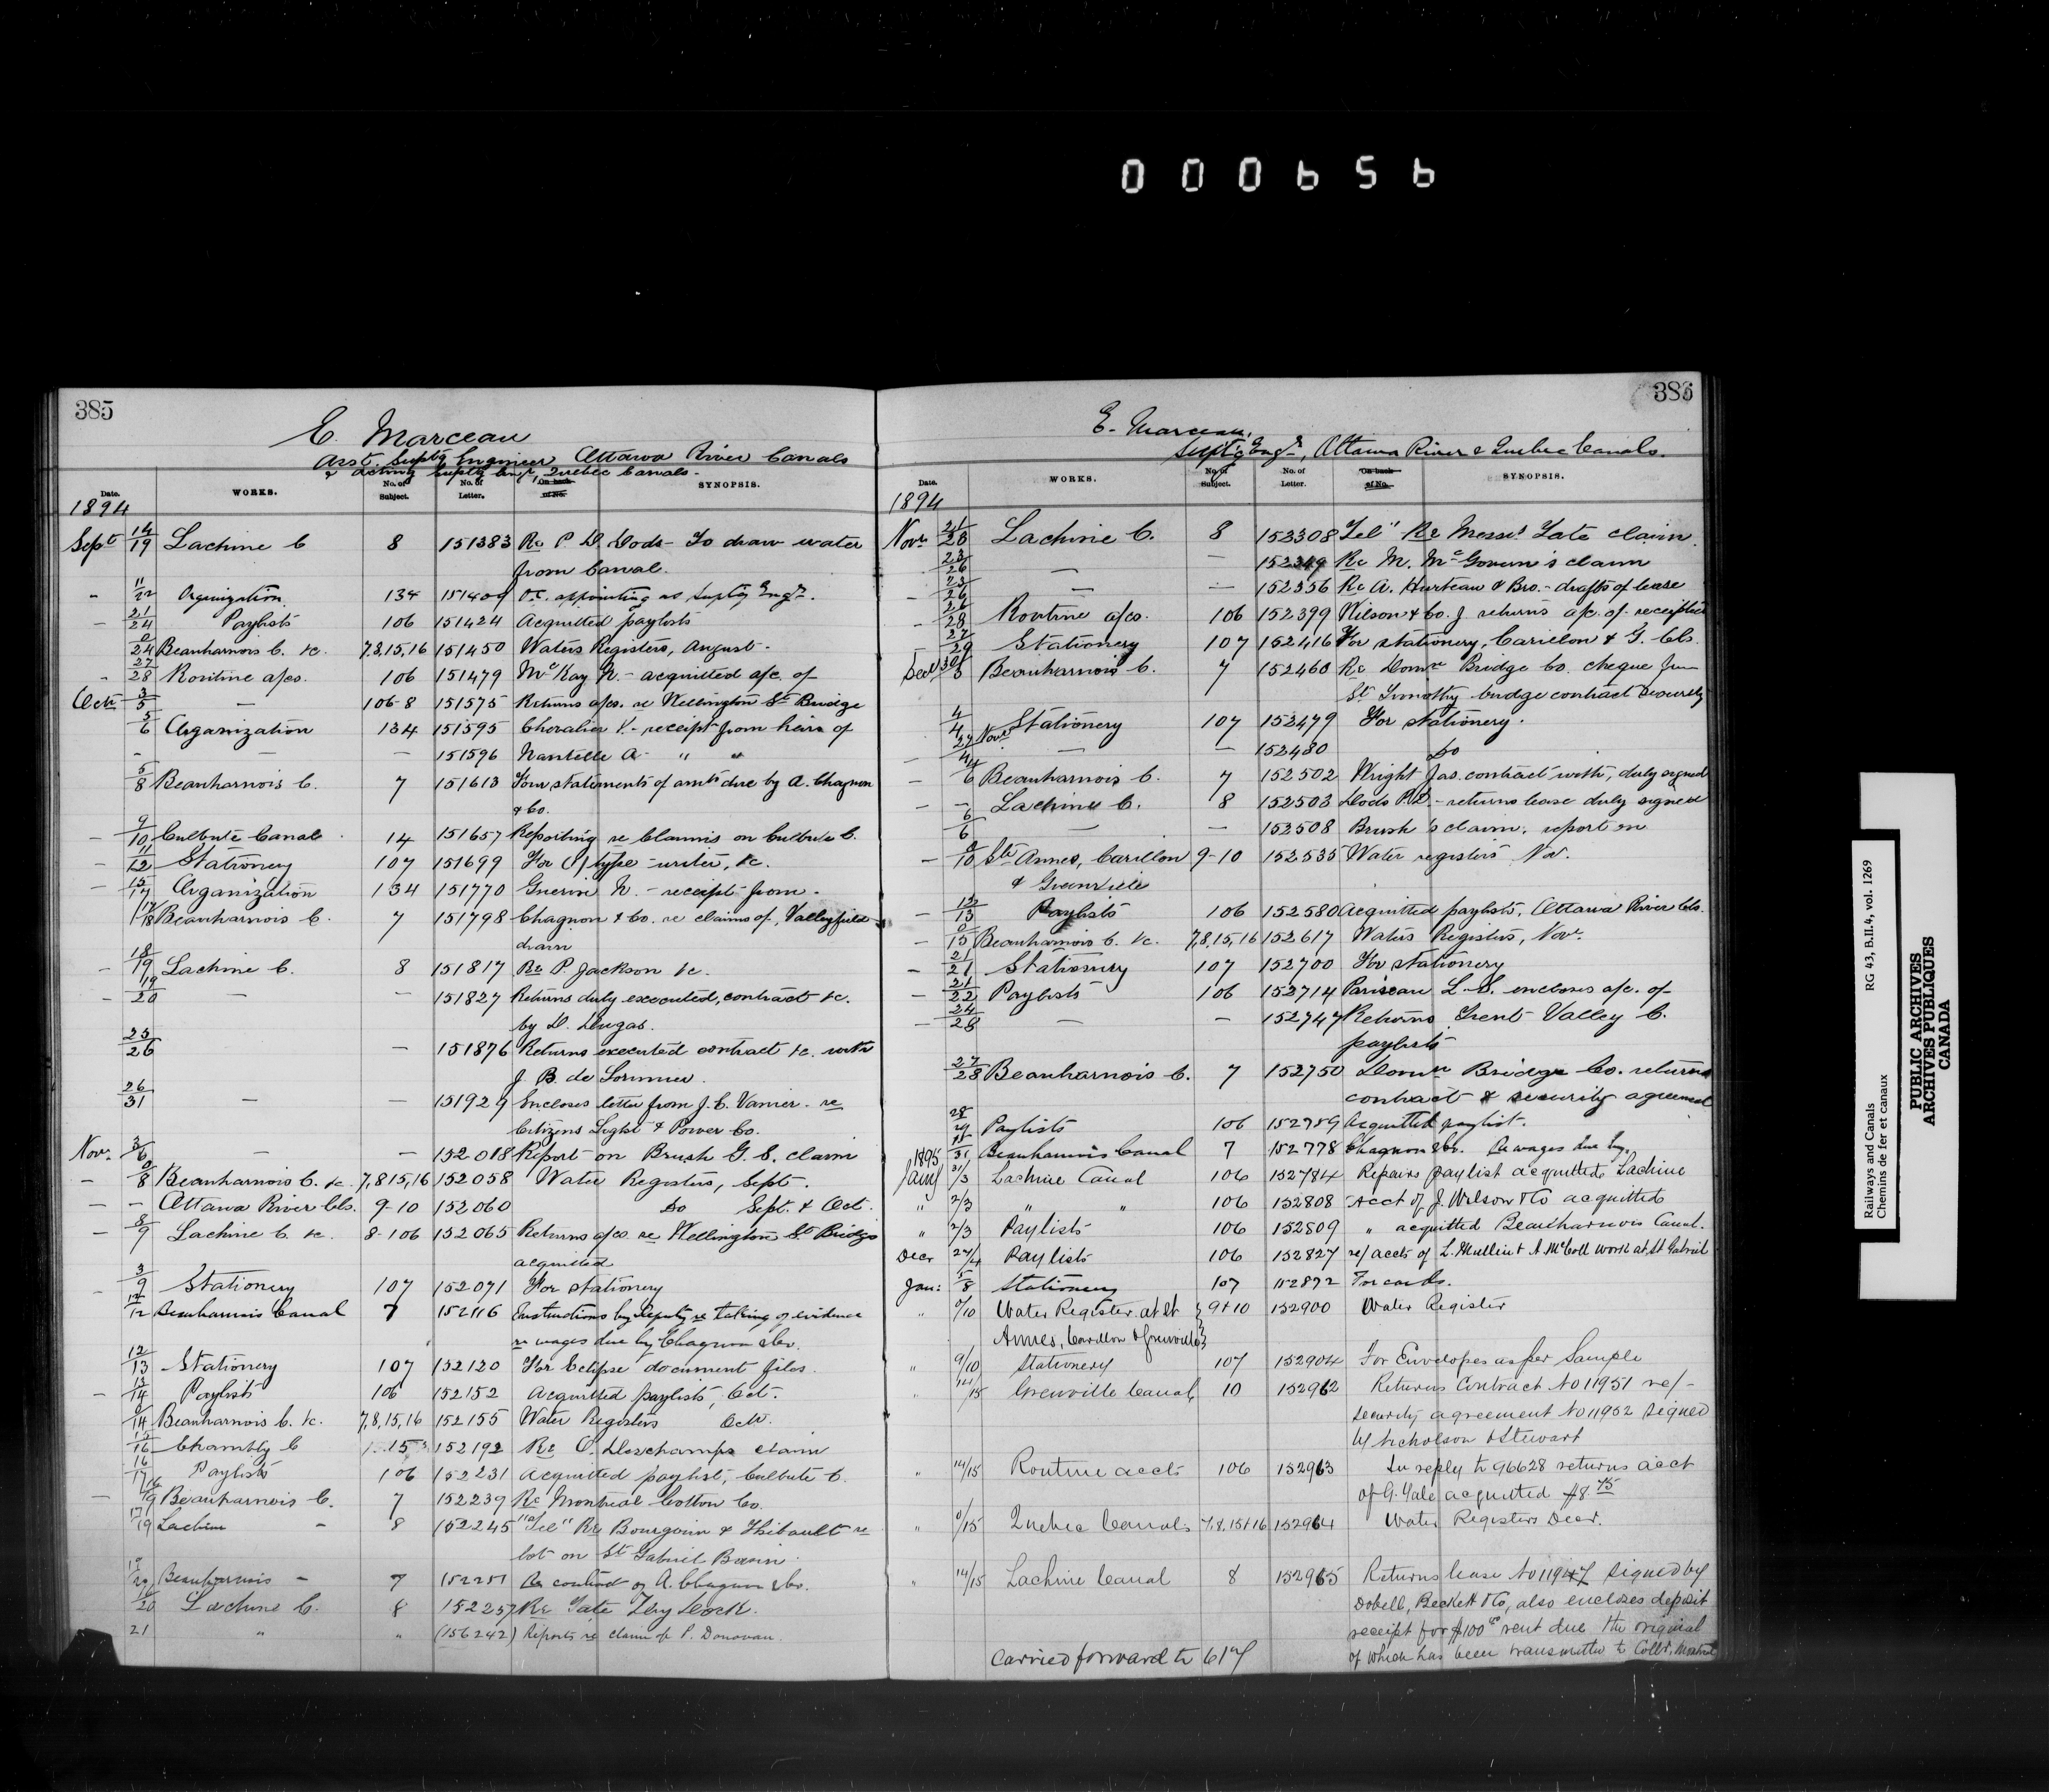 000656
385
E. Marceau
Asst. Suptg Engineer Ottawa River Canals
& acting Suptg Engr, Quebec Canals.
Date. WORKS. No. of Subject. No. of Letter. On back of No. SYNOPSIS.
1894
Sept 14/19 Lachine C 8 151383 Re P. D. Dods - To draw water
from Canal.
" 11/22 Organization 134 151409 O.C. appointing as Suptg Engr.
- 21/24 Paylists 106 151424 Acquitted paylists
0/24 Beauharnois C. &c. 7,8,15,16 151450 Waters Registers, August.
" 27/28 Routine a/cs. 106 151479 McKay N. - acquitted a/c. of
Oct 3/5 — 106-8 151575 Returns a/cs. re Wellington St Bridge
5/6 Organization 134 151595 Chevalier V. - receipt from heirs of
- — — 151596 Nantelle A - " "
5/8 Beauharnois C. 7 151613 Four statements of amts due by A. Chagnon
& Co.
- 9/10 Culbute Canal 14 151657 Reporting re Claims on Culbute C.
- 11/12 Stationery 107 151699 For type-writer, &c.
- 15/17 Organization 134 151770 Guerin N. - receipt from.
17/18 Beauharnois C. 7 151798 Chagnon & Co. re claims of, Valleyfield
drain
- 18/19 Lachine C. 8 151817 Re P. Jackson &c.
- 19/20 — — 151827 Returns duly executed, contract &c.
by D. Dugas.
25/26 — 151876 Returns executed contract &c. with
J. B. de Lorimier.
26/31 — — 151929 Encloses letter from J. E. Vanier. re
Citizens Light & Power Co.
Nov. 3/6 — — 152018 Report on Brush G. S. claim
- 0/8 Beauharnois C. &c. 7,8,15,16 152058 Water Registers, Sept.
- — Ottawa River Cls. 9-10 152060 Do Sept. & Oct.
- 8/9 Lachine C. &c. 8-106 152065 Returns a/cs. re Wellington St Bridge
acquitted
- 3/9 Stationery 107 152071 For stationery
12/12 Beauharnois Canal 7 152116 Instructions by Deputy re taking of evidence
re wages due by Chagnon & Co.
12/13 Stationery 107 152120 For Eclipse document files.
- 13/14 Paylists 106 152152 Acquitted paylists, Oct.
0/14 Beauharnois C. &c. 7,8,15,16 152155 Water Registers Oct.
15/16 Chambly C 15 152192 Re O. Deschamps claim
16/17 Paylists 106 152231 Acquitted paylist, Culbute C.
- 16/19 Beauharnois C. 7 152239 Re Montreal Cotton Co.
17/19 Lachine - 8 152245 "Tel" Re Bourgouin & Thibault re
lot on St Gabriel Basin.
19/20 Beauharnois - 7 152251 Re contract of A. Chagnon & Co.
/20 Lachine C. 8 152257 Re Tate Dry Dock.
21 " " (156242) Reports re claim of P. Donovan.
386
E. Marceau,
Suptg Engr, Ottawa River & Quebec Canals.
Date. WORKS. No. of Subject. No. of Letter. On back of No. SYNOPSIS.
1894
Nov. 21/23 Lachine C. 8 152308 "Tel" Re Messrs Tate claim.
23/26 — — 152349 Re M. McGovern's claim
- 23/26 — 152356 Re A. Hurteau & Bro. - drafts of lease
- 26/28 Routine a/cs. 106 152399 Wilson & Co. J returns a/c. of receipted
27/29 Stationery 107 152416 For stationery, Carillon & G. Cls.
Dec 30/3 Beauharnois C. 7 152460 Re Domn Bridge Co. cheque for
St Timothy bridge contract security
4/4 Stationery 107 152479 For stationery.
- 27 Nov/4 — — 152480 Do
- 4/6 Beauharnois C. 7 152502 Wright Jas. contract with, duly signed
- — Lachine C. 8 152503 Dods P.D. - returns lease duly signed
6/6 — — 152508 Brush's claim, report on
- 0/10 Ste Annes, Carillon 9-10 152535 Water registers Nov.
& Grenville
- 12/13 Paylists 106 152580 Acquitted paylists, Ottawa River Cls.
- 0/15 Beauharnois C. &c. 7,8,15,16 152617 Waters Registers, Nov.
- 21/21 Stationery 107 152700 For stationery
- 21/22 Paylists 106 152714 Pariseau L. S. encloses a/c. of
- 24/28 — — 152747 Returns Trent Valley C.
paylists
27/28 Beauharnois C. 7 152750 Domn Bridge Co. returns
contract & security agreement
28/29 Paylists 106 152759 Acquitted paylist.
1895 15/31 Beauharnois Canal 7 152778 Chagnon & Co. Re wages due by.
Jany 31/3 Lachine Canal 106 152784 Repairs paylist acquitted Lachine
" 2/3 " " 106 152808 Acct of J. Wilson & Co acquitted
" 2/3 Paylists 106 152809 " acquitted Beauharnois Canal.
Decr 24/4 Paylists 106 152827 re/ accts of L. Mullin & A. McColl work at St Gabriel
Jan: 5/8 Stationery 107 152872 For cards.
" 0/10 Water Register at St } 9+10 152900 Water Register
Annes, Carillon & Grenville }
" 9/10 Stationery 107 152904 For Envelopes as per Sample
" 14/15 Grenville Canal 10 152962 Returns Contract No 11951 re/-
security agreement No 11952 signed
by Nicholson & Stewart
" 14/15 Routine accts 106 152963 In reply to 96628 returns acct
of G. Yale acquitted $8 75
" 0/15 Quebec Canals 7,8,15+16 152964 Water Registers Decr.
" 14/15 Lachine Canal 8 152965 Returns lease No 11947 signed by
Dobell, Beckett & Co, also encloses deposit
receipt for $100 00 rent due the original
of which has been transmitted to Collr, Montreal
Carried forward to 617
Railways and Canals RG 43, B.II.4, vol. 1269
Chemins de fer et canaux
PUBLIC ARCHIVES
ARCHIVES PUBLIQUES
CANADA